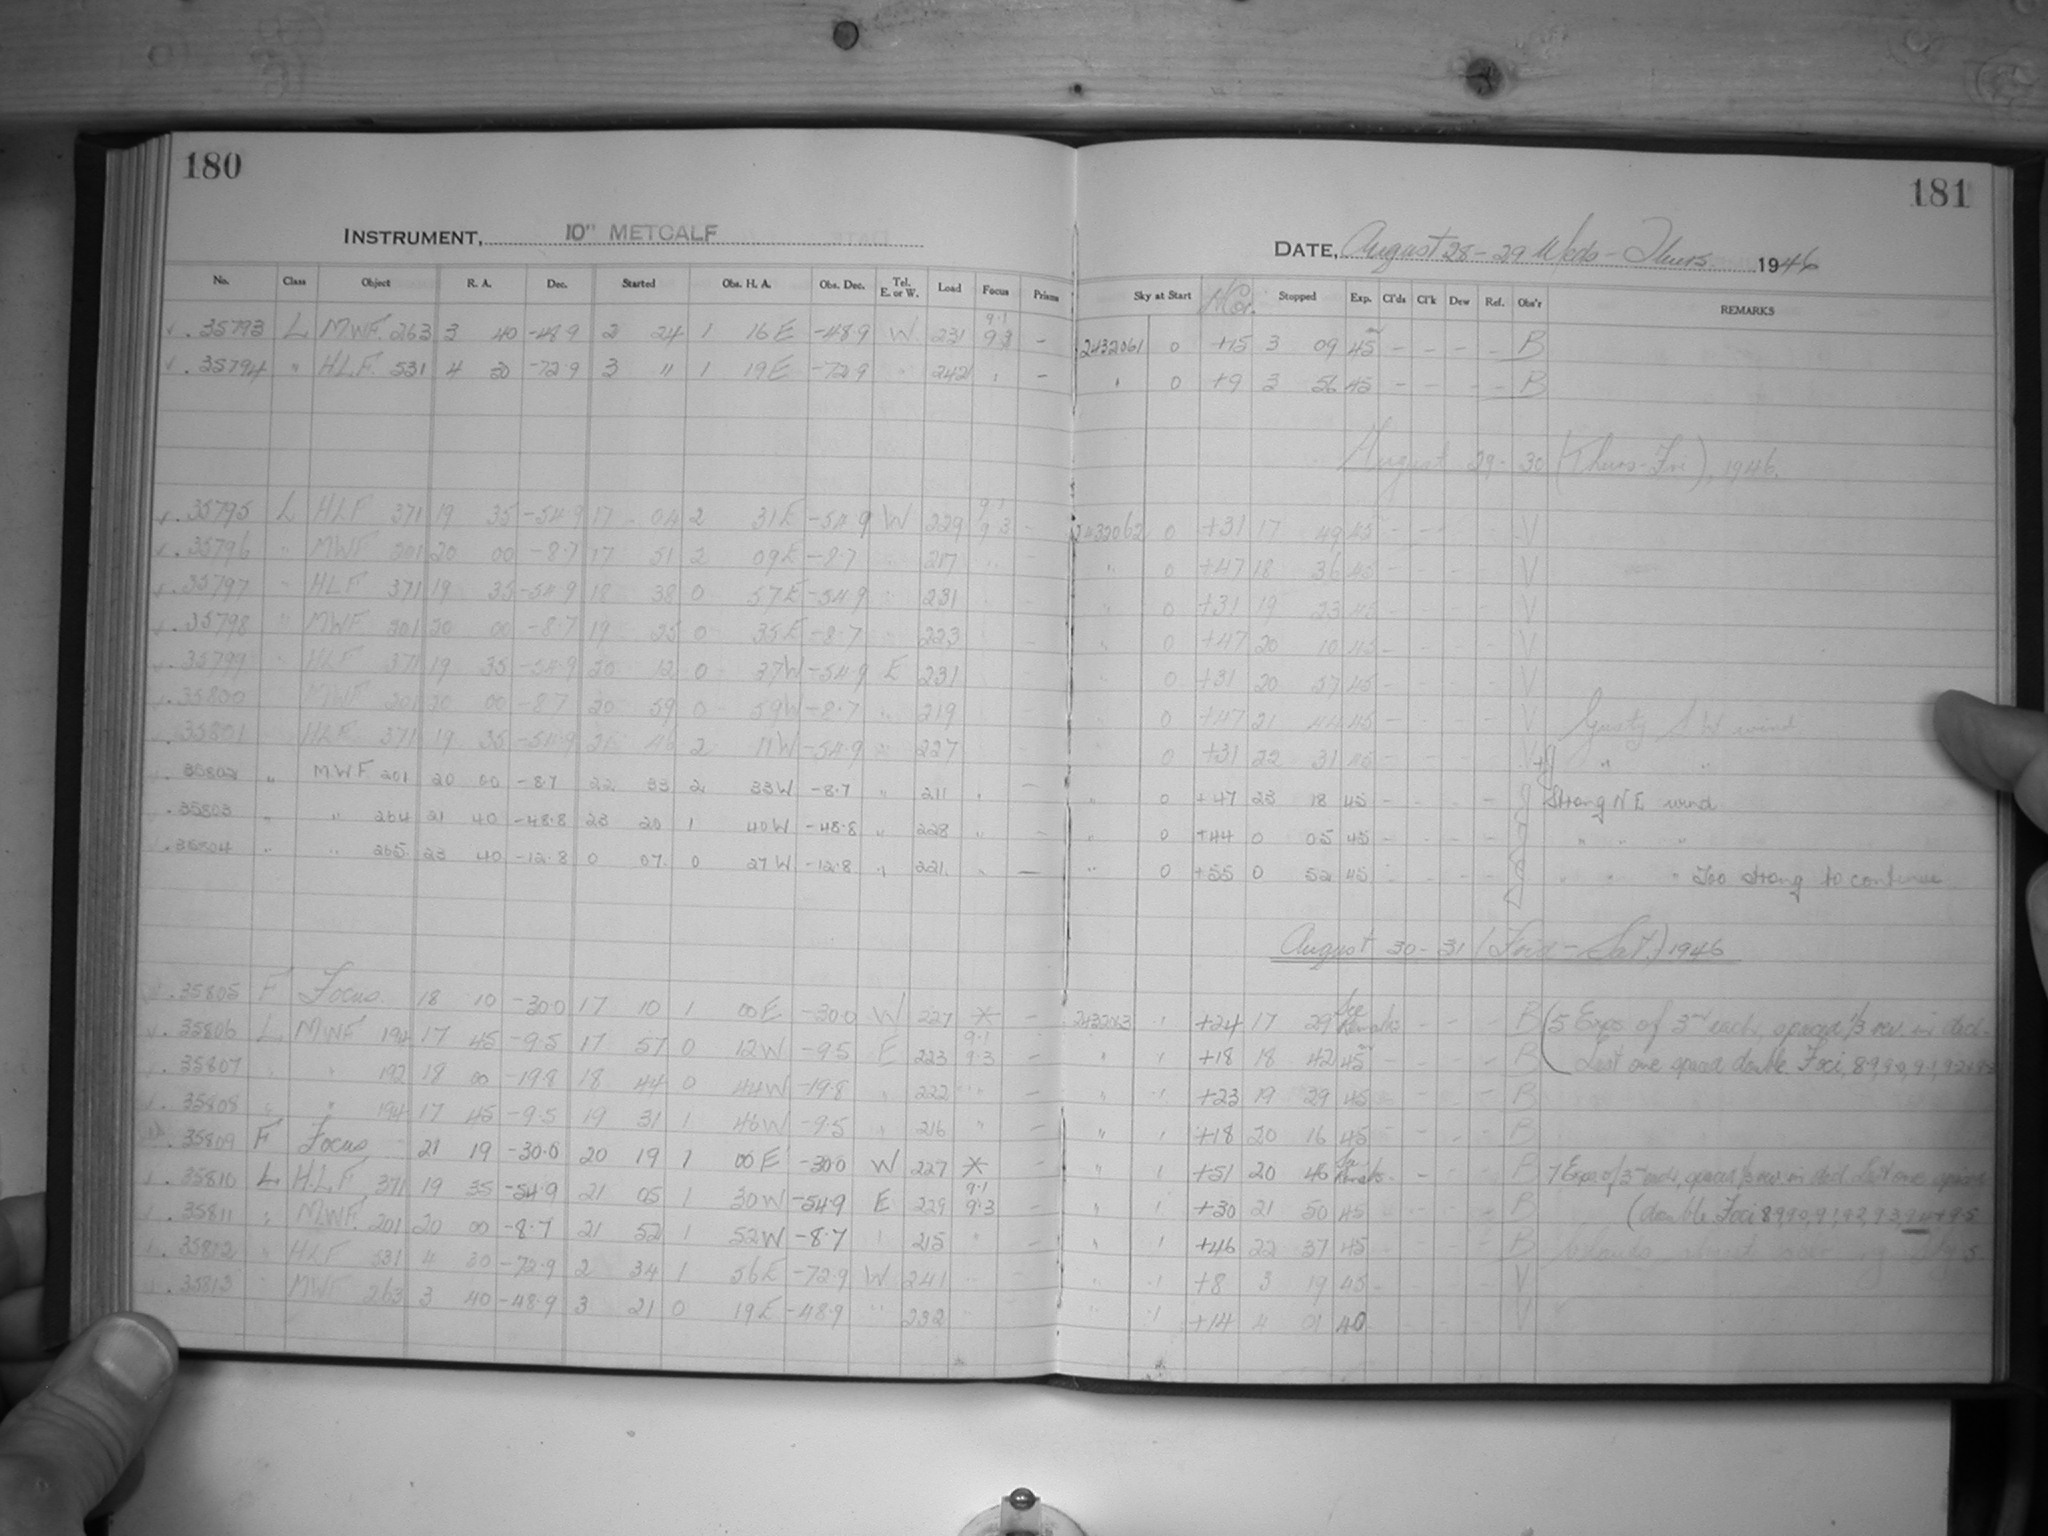 180
INSTRUMENT, 10" METCALF
No. Class Object R. A. Dec. Started Obs. H. A. Obs. Dec. Tel. E. or W. Load Focus Prisms
9.1
35793 L MWF. 263 3 40 -48.9 2 24 1 16E -48.9 W 231 9.3 -
35794 " H.L.F. 531 4 30 -72.9 3 11 1 19E -72.9 " 242 " -
9.1
35795 L HLF 371 19 35 -54.9 17 04 2 31E -54.9 W 229 9.3 -
35796 " MWF 201 20 00 -8.7 17 51 2 09E -8.7 " 217 " -
35797 " HLF 371 19 35 -54.9 18 38 0 57E -54.9 " 231
35798 " MWF 201 20 00 -8.7 19 25 0 35E -8.7 " 223
35799 " HLF 371 19 35 -54.9 20 12 0 37W -54.9 E 231
35800 MWF 201 20 00 -8.7 20 59 0 59W -8.7 " 219
35801 HLF 371 19 35 -54.9 21 46 2 11W -54.9 " 227
35802 " MWF 201 20 00 -8.7 22 33 2 33W -8.7 " 211 " -
35803 " " 264 21 40 -48.8 23 20 1 40W -48.8 " 228 " -
35804 " " 265 23 40 -12.8 0 07 0 27W -12.8 " 221 " -
35805 F Focus. 18 10 -30.0 17 10 1 00E -30.0 W 227 * -
9.1
35806 L MWF 194 17 45 -9.5 17 57 0 12W -9.5 E 223 9.3 -
35807 " " 192 18 00 -19.8 18 44 0 44W -19.8 " 222 " -
35808 " " 194 17 45 -9.5 19 31 1 46W -9.5 " 216 " -
35809 F Focus 21 19 -30.0 20 19 1 00E -30.0 W 227 * -
9.1
35810 L H.L.F. 371 19 35 -54.9 21 05 1 30W -54.9 E 229 9.3 -
35811 " M.W.F. 201 20 00 -8.7 21 52 1 52W -8.7 " 215 " -
35812 " HLF 531 4 30 -72.9 2 34 1 56E -72.9 W 241
35813 MWF 263 3 40 -48.9 3 21 0 19E -48.9 " 232
181
DATE, August 28-29 Weds-Thurs 1946
Sky at Start H Cor. Stopped Exp. Cl'ds Cl'k Dew Ref. Obs'r REMARKS
2432061 0 +15 3 09 45 - - - - B
" 0 +9 3 56 45 - - - - B
August 29-30 (Thurs-Fri), 1946.
2432062 0 +31 17 49 45 - - - - V
" 0 +47 18 36 45 - - - - V
" 0 +31 19 23 45 - - - - V
" 0 +47 20 10 45 - - - - V
" 0 +31 20 57 45 - - - - V
" 0 +47 21 44 45 - - - - V Gusty S W wind
0 +31 22 31 45 - - - - " "
" 0 +47 23 18 45 - - - - Strong N E wind
" 0 +44 0 05 45 - - - - " " "
" 0 +55 0 52 45 - - - - " " " Too strong to continue
August 30-31 (Frid-Sat.) 1946
2432063 1 +24 17 29 See Remarks - - - - B (5 Exps of 3m each, spaced 1/3 rev. in decl.
" 1 +18 18 42 45 - - - - B Last one spaced double Foci, 8.9, 9.0, 9.1, 9.2
" 1 +23 19 29 45 - - - - B
" 1 +18 20 16 45 - - - - B
" 1 +51 20 46 See Remarks - - - - B 7 Exps of 3m each, spaced 1/3 rev. in decl. Last one spaced
" 1 +30 21 50 45 - - - - B (double Foci 8.9, 9.0, 9.1, 9.2, 9.3, 9.4 + 9.5
" 1 +46 22 37 45 - - - - B
" 1 +8 3 19 45 - - - - V
" 1 +14 4 01 40 - - - - V